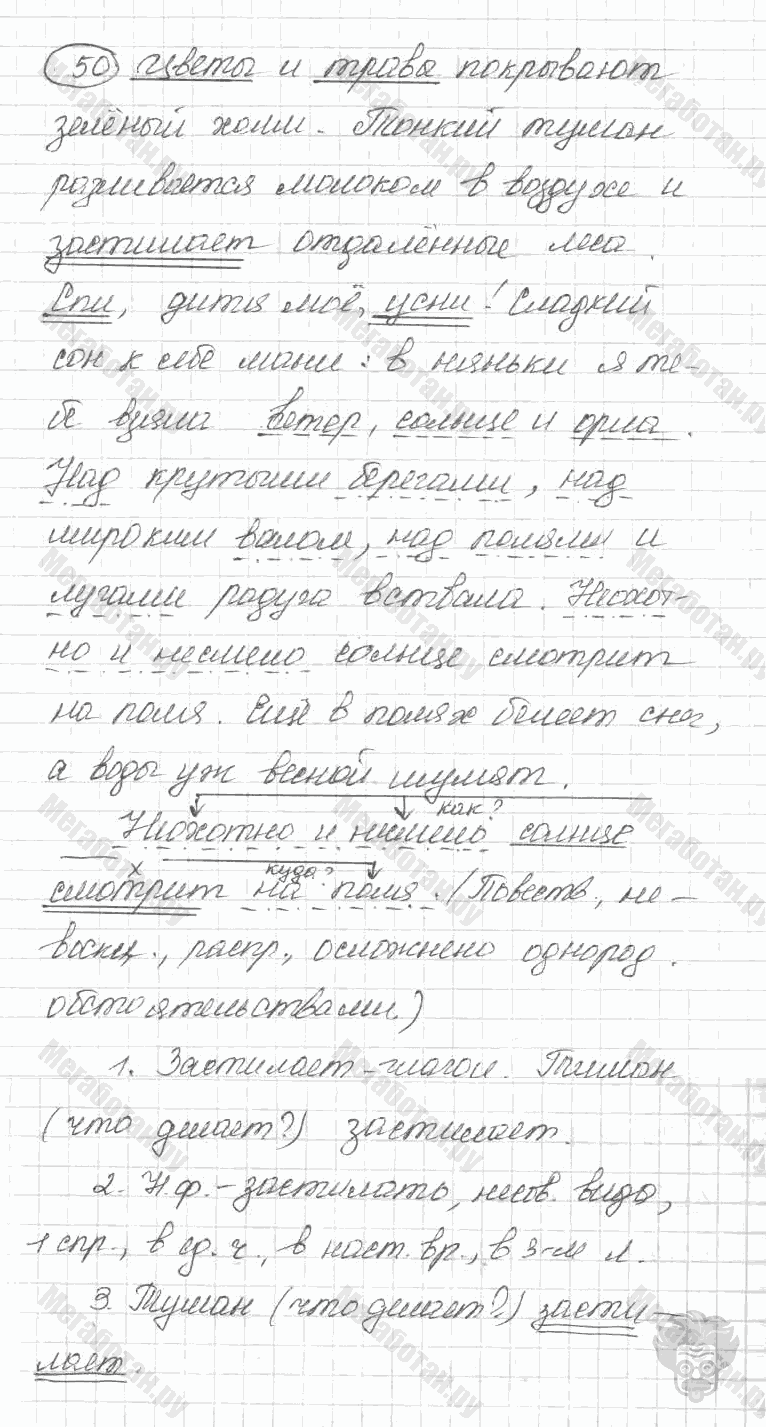 50 Цветы и трава покрывают
зелёный холм. Тонкий туман
разливается молоком в воздухе и
застилает отдалённые леса.
Спи, дитя моё, усни! Сладкий
сон к себе мани: в няньки я те-
бе взяла ветер, солнце и орла.
Над крутыми берегами, над
широким валом, над полями и
лугами радуга вставала. Неохот-
но и несмело солнце смотрит
на поля. Ещё в полях белеет снег,
а воды уж весной шумят.
как?
Неохотно и несмело солнце
х куда?
смотрит на поля. (Повеств., не-
воскл., распр., осложнено однород.
обстоятельствами.)
1. Застилает - глагол. Туман
(что делает?) застилает.
2. Н.ф. - застилать, несов. вида,
1 спр., в ед. ч., в наст. вр., в 3-м л.
3. Туман (что делает?) засти-
лает.
Мегаботан.ру